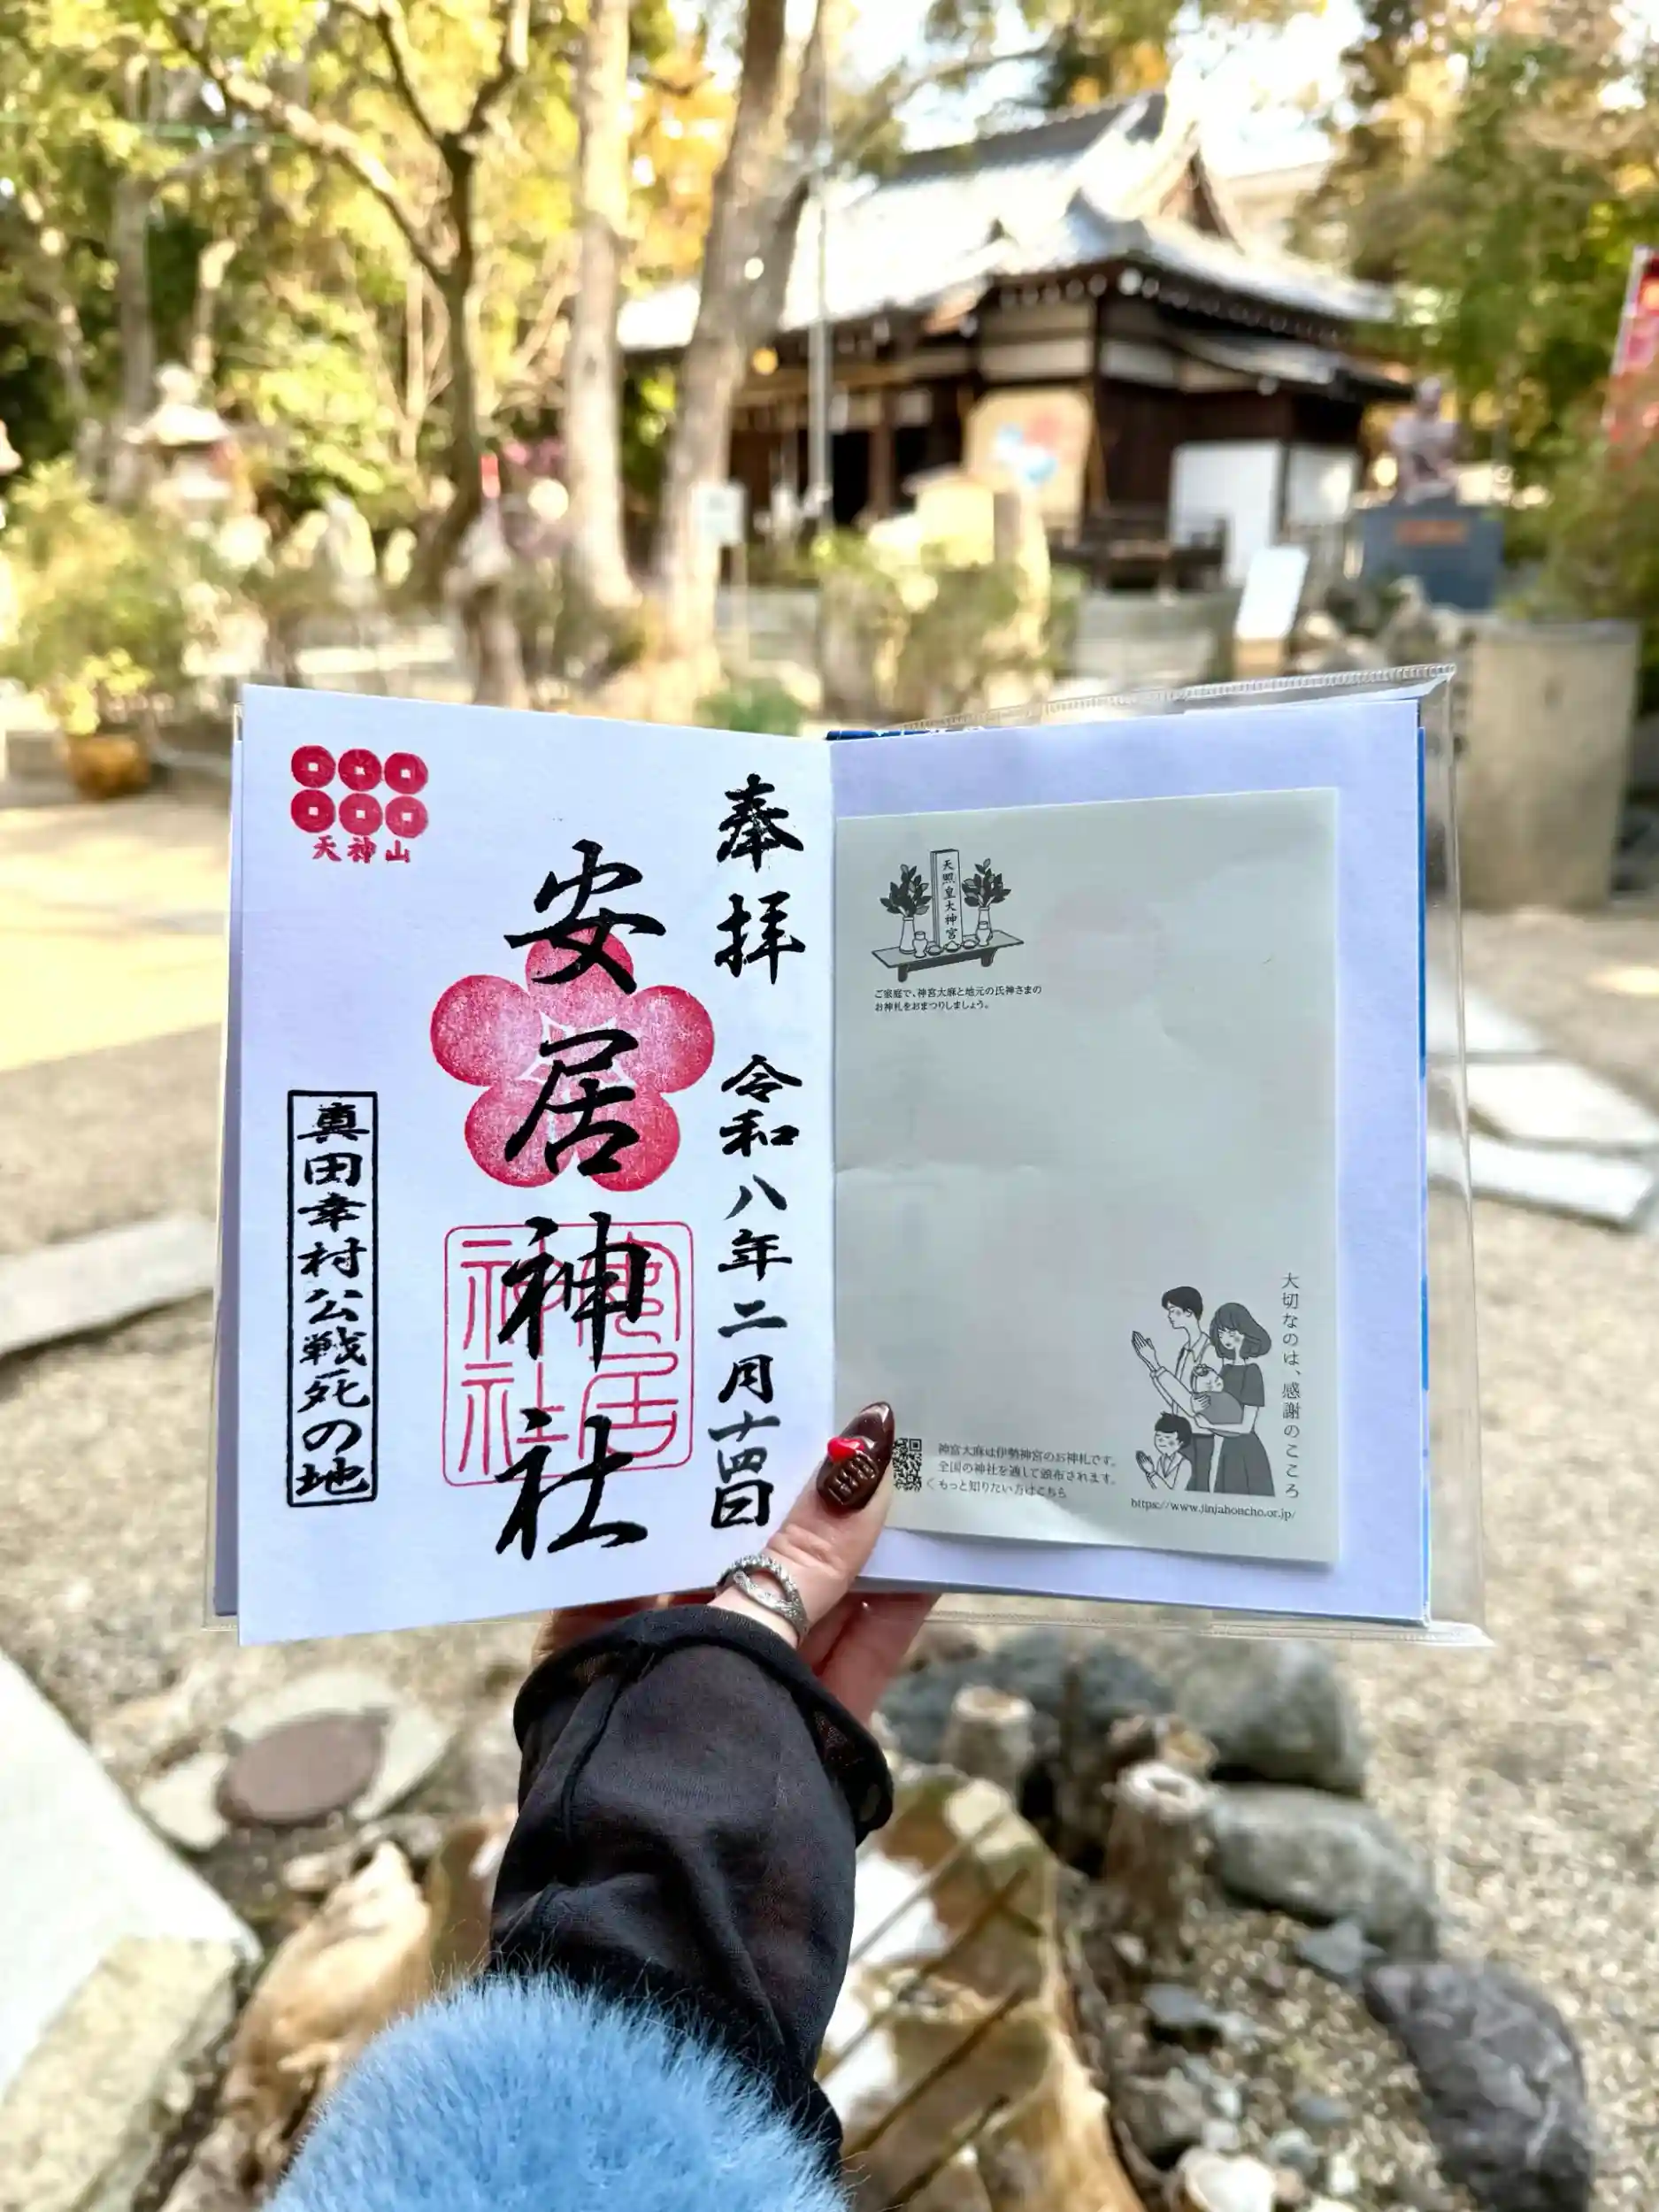 奉拝
令和八年二月十四日
安居神社
安居神社
天神山
真田幸村公戦死の地
天照皇大神宮
ご家庭で、神宮大麻と地元の氏神さまの
お神札をおまつりしましょう。
大切なのは、感謝のこころ
神宮大麻は伊勢神宮のお神札です。
全国の神社を通して頒布されます。
くもっと知りたい方はこちら
https://www.jinjahoncho.or.jp/